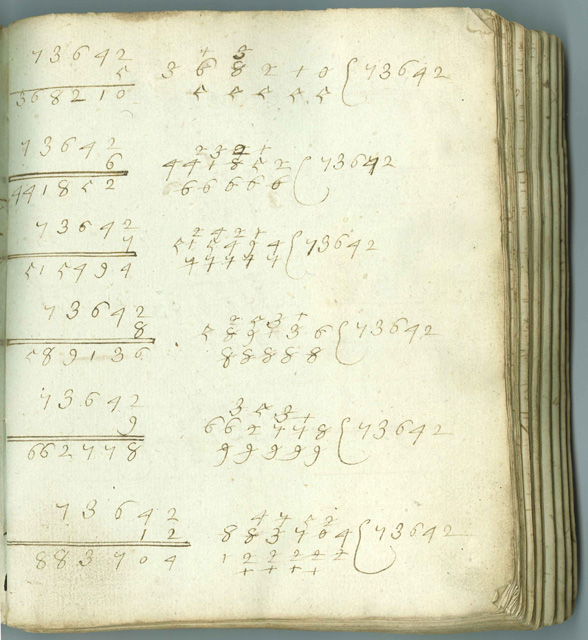 73642
5
368210
1 3
368210 ( 73642
55555
73642
6
441852
2321
441852 ( 73642
66666
73642
7
515494
2421
515494 ( 73642
77777
73642
8
589136
2531
589136 ( 73642
88888
73642
9
662778
3531
662778 ( 73642
99999
73642
12
883704
4752
883704 ( 73642
122222
1111